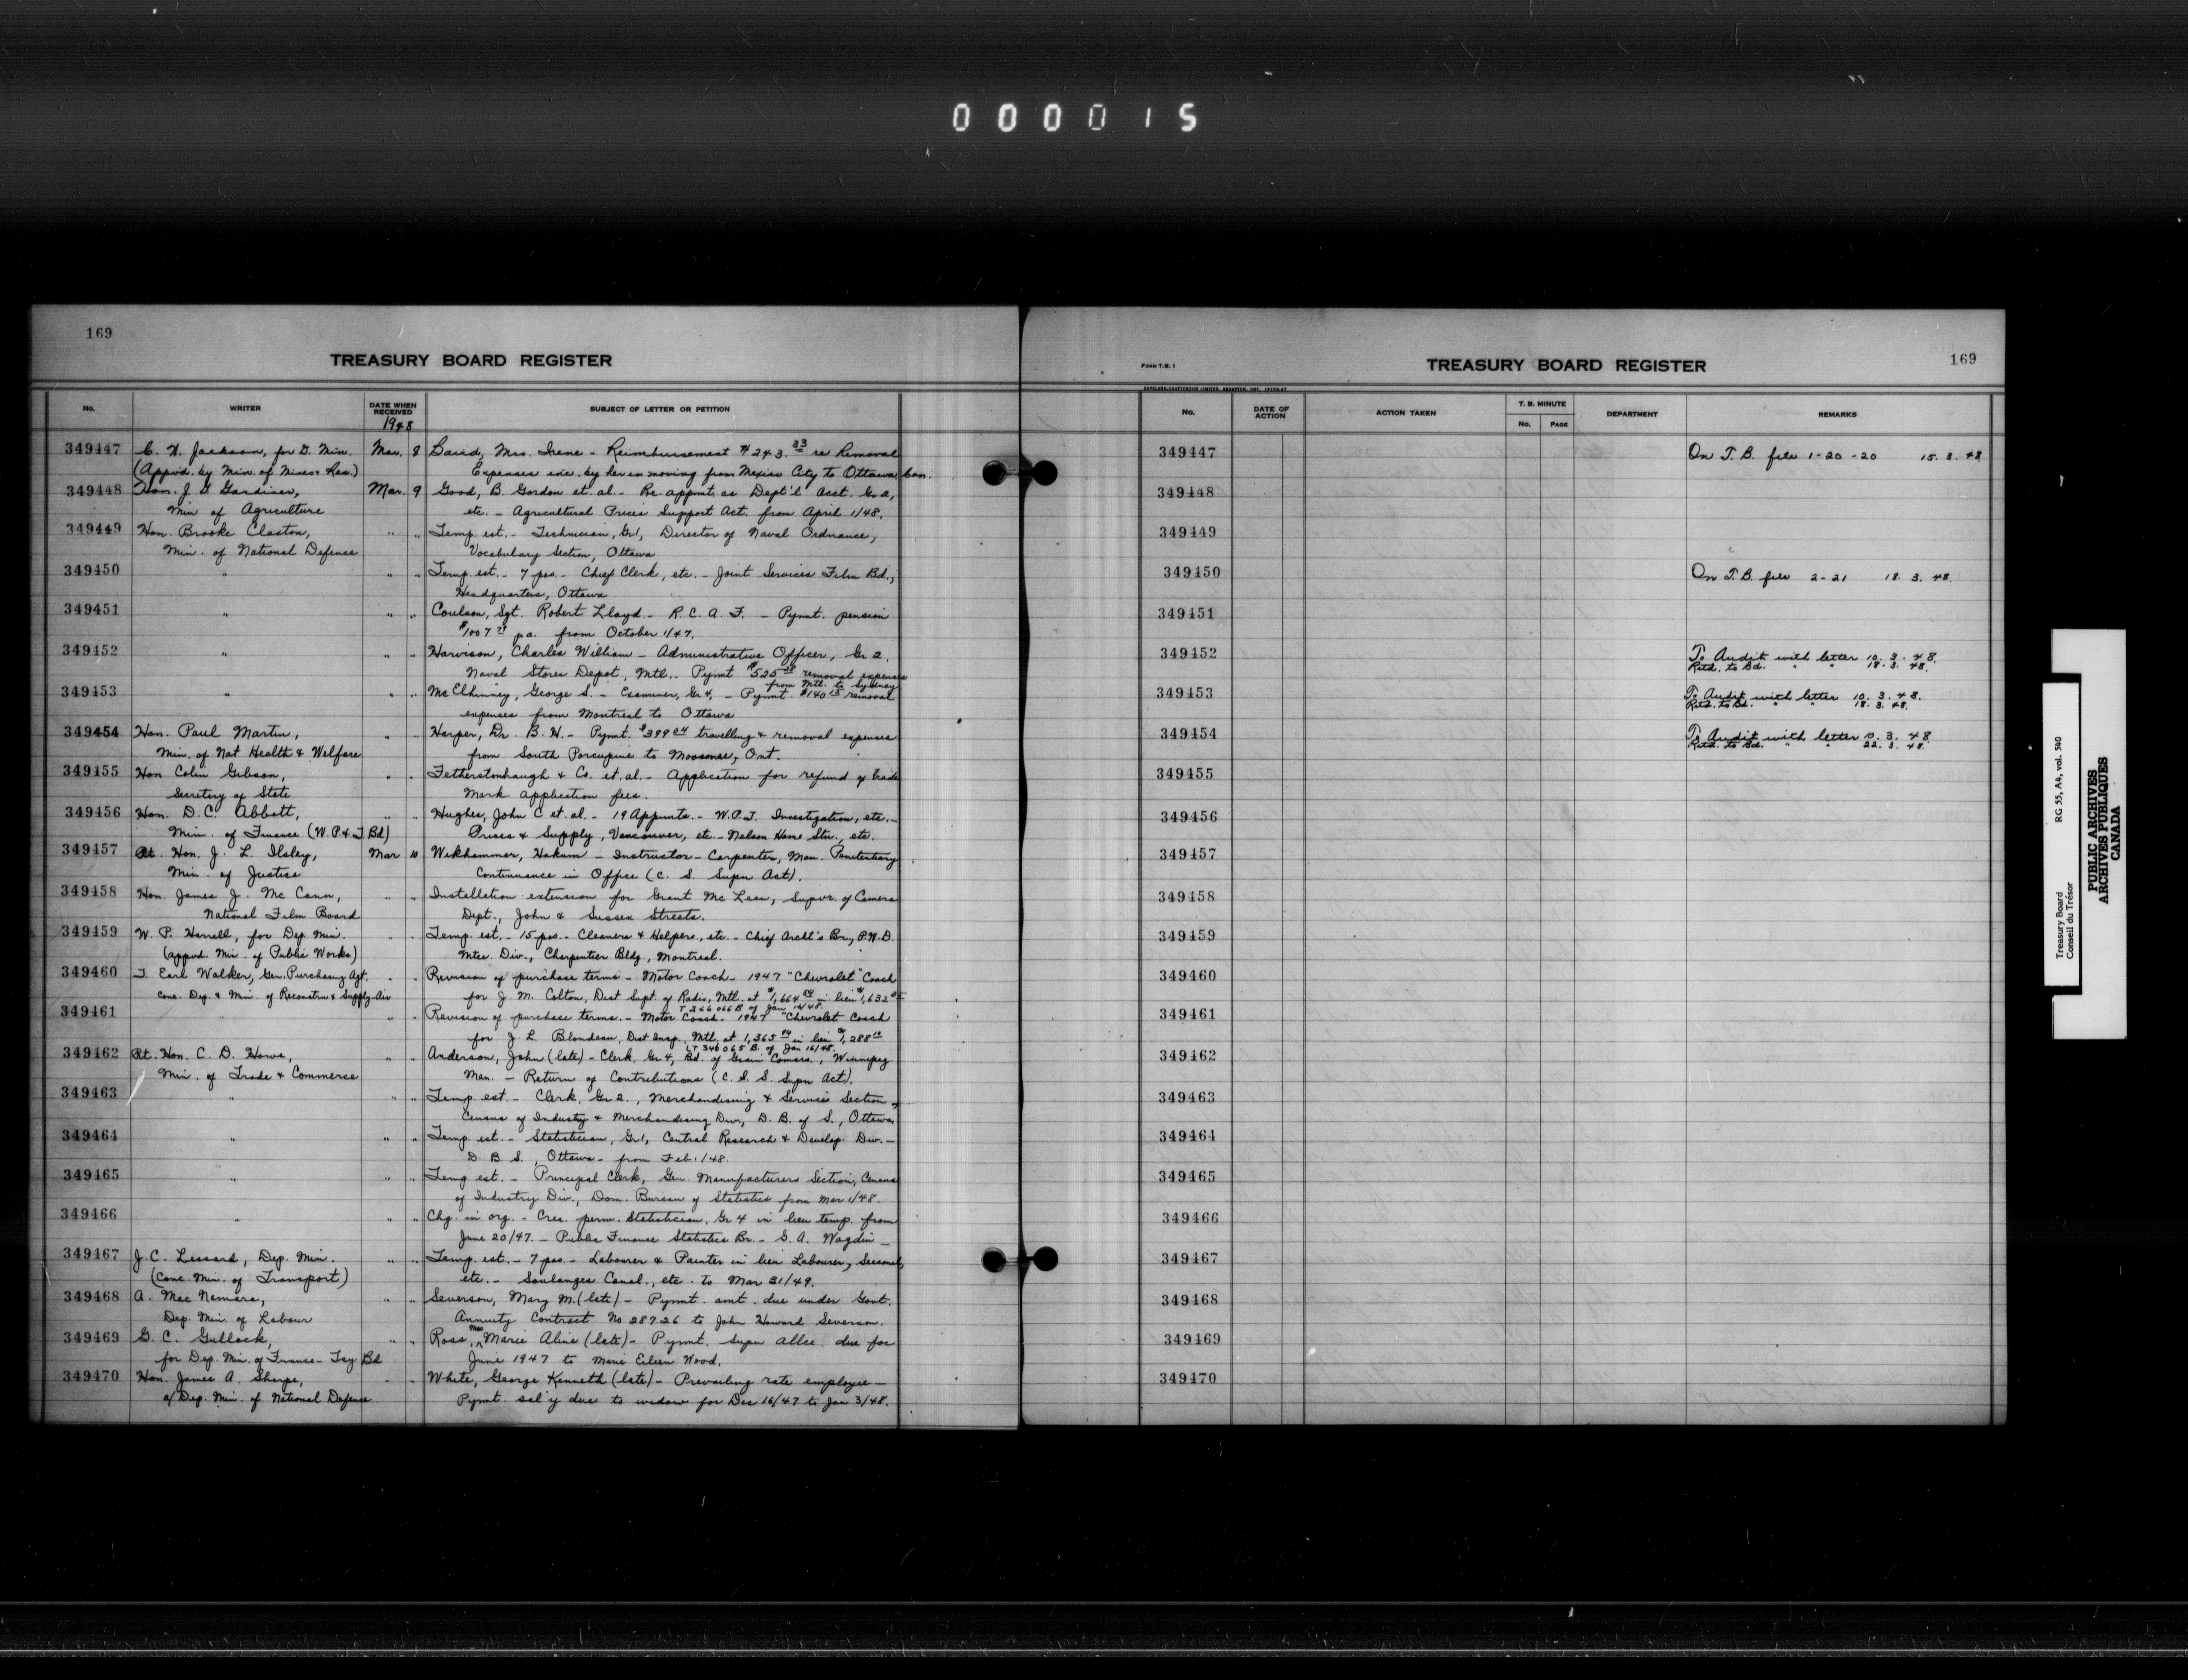 000015
169
TREASURY BOARD REGISTER
No. WRITER DATE WHEN RECEIVED SUBJECT OF LETTER OR PETITION
1948
349447 C. N. Jackson, for D. Min. Mar. 8 Baird, Mrs. Irene - Reimbursement $243.33 re Removal
(Appvd. by Min. of Mines & Res.) Expenses inc. by her in moving from Mexico City to Ottawa, Can.
349448 Hon. J. G. Gardiner, Mar. 9 Good, B. Gordon et. al. - Re appmt. as Dept'l Acct. Gr 2,
Min of Agriculture etc. - Agricultural Prices Support Act. from April 1/48.
349449 Hon. Brooke Claxton, " " Temp. est. - Technician, Gr 1, Director of Naval Ordnance,
Min. of National Defence Vocabulary Section, Ottawa
349450 " " " Temp. est. - 7 pos. - Chief Clerk, etc. - Joint Services Film Bd.,
Headquarters, Ottawa
349451 " " " Coulson, Sgt. Robert Lloyd - R.C.A.F. - Pymt. pension
$1007 pa. from October 1/47.
349452 " " " Harvison, Charles William - Administrative Officer, Gr 2.
Naval Stores Depot, Mtl. - Pymt $525 removal expenses
from Mtl. to Sydney
349453 " " " McElhinney, George S. - Examiner, Gr 4, - Pymt. $140 15 removal
expenses from Montreal to Ottawa
349454 Hon. Paul Martin, " " Harper, Dr. B. H. - Pymt. $399 04 travelling & removal expenses
Min. of Nat Health & Welfare from South Porcupine to Moosonee, Ont.
349455 Hon Colin Gibson, " " Fetherstonhaugh & Co. et. al. - Application for refund of trade
Secretary of State Mark application fees.
349456 Hon. D. C. Abbott, " " Hughes, John C et. al. - 19 Appmts. - W.P.T. Investigation, etc. -
Min. of Finance (W.P. & T Bd) Prices & Supply, Vancouver, etc. - Nelson Stn., etc.
349457 Rt. Hon. J. L. Ilsley, Mar 10 Wikhammer, Hakum - Instructor - Carpenter, Man. Penitentiary
Min. of Justice Continuance in Office (C. S. Supn Act).
349458 Hon. James J. McCann, " " Installation extension for Grant McLean, Supvr. of Camera
National Film Board Dept., John & Sussex Streets.
349459 W. P. Harrell, for Dep. Min. " " Temp. est. - 15 pos. - Cleaners & Helpers, etc. - Chief Archt's Br., P.W.D.
(appvd. Min. of Public Works) Mtce. Div., Charpentier Bldg., Montreal.
349460 T. Earl Walker, Gen. Purchasing Agt. " " Revision of purchase terms - Motor Coach - 1947 "Chevrolet" Coach
conc. Dep. & Min. of Reconstrn & Supply - Air for J. M. Colton, Dist Supt. of Radio, Mtl. at $1,664 in lieu $1,632
T 346066 B of Jan 16/48.
349461 " " " Revision of purchase terms. - Motor Coach - 1947 "Chevrolet Coach
for J. L. Blondeau, Dist Insp., Mtl. at 1,365 in lieu $1,288
(T 346065 B. of Jan 16/48.
349462 Rt. Hon. C. D. Howe, " " Anderson, John (late) - Clerk, Gr 4, Bd. of Grain Comsrs., Winnipeg
Min. of Trade & Commerce Man. - Return of Contributions (C. S. Supn Act).
349463 " " " Temp est. - Clerk, Gr 2., Merchandising & Services Section of
Census of Industry & Merchandising Div., D. B. of S., Ottawa
349464 " " " Temp. est. - Statistician, Gr 1, Central Research & Develop. Div. -
D. B. S., Ottawa - from Feb. 1/48.
349465 " " " Temp est. - Principal Clerk, Gen Manufacturers Section, Census
of Industry Div., Dom. Bureau of Statistics from Mar 1/48.
349466 " " " Chg. in org. - Crea. perm. Statistician, Gr 4 in lieu temp. from
June 20/47. - Public Finance Statistics Br. - G. A. Wagdin -
349467 J. C. Lessard, Dep. Min. " " Temp. est. - 7 pos. - Labourer & Painter in lieu Labourer, Seasonal,
(Conc. Min. of Transport) etc. - Soulanges Canal., etc. to Mar 31/49.
349468 A. MacNamara, " " Severson, Mary M. (late) - Pymt. amt. due under Govt.
Dep. Min. of Labour Annuity Contract No 28726 to John Howard Severson.
349469 G. C. Gullock, " " Ross, Mrs Marie Aline (late) - Pymt. Supn allce. due for
for Dep. Min. of Finance - Tsy Bd June 1947 to Marie Eileen Wood.
349470 Hon. James A. Sharpe, " " White, George Kenneth (late) - Prevailing rate employee -
a/Dep. Min. of National Defence Pymt. sal'y due to widow for Dec 16/47 to Jan 3/48.
FORM T.B. 1
TREASURY BOARD REGISTER
169
No. DATE OF ACTION ACTION TAKEN T. B. MINUTE No. PAGE DEPARTMENT REMARKS
349447 On T.B. file 1-20-20 15.3.48
349448
349449
349450 On T.B. file 2-21 18.3.48.
349451
349452 To Audit with letter 10.3.48.
Retd. to Bd. " " 18.3.48.
349453 To Audit with letter 10.3.48.
Retd. to Bd. " " 18.3.48.
349454 To Audit with letter 10.3.48
Retd. to Bd. " " 22.3.48.
349455
349456
349457
349458
349459
349460
349461
349462
349463
349464
349465
349466
349467
349468
349469
349470
Treasury Board
Conseil du Trésor
RG 55, A4, vol. 540
PUBLIC ARCHIVES
ARCHIVES PUBLIQUES
CANADA